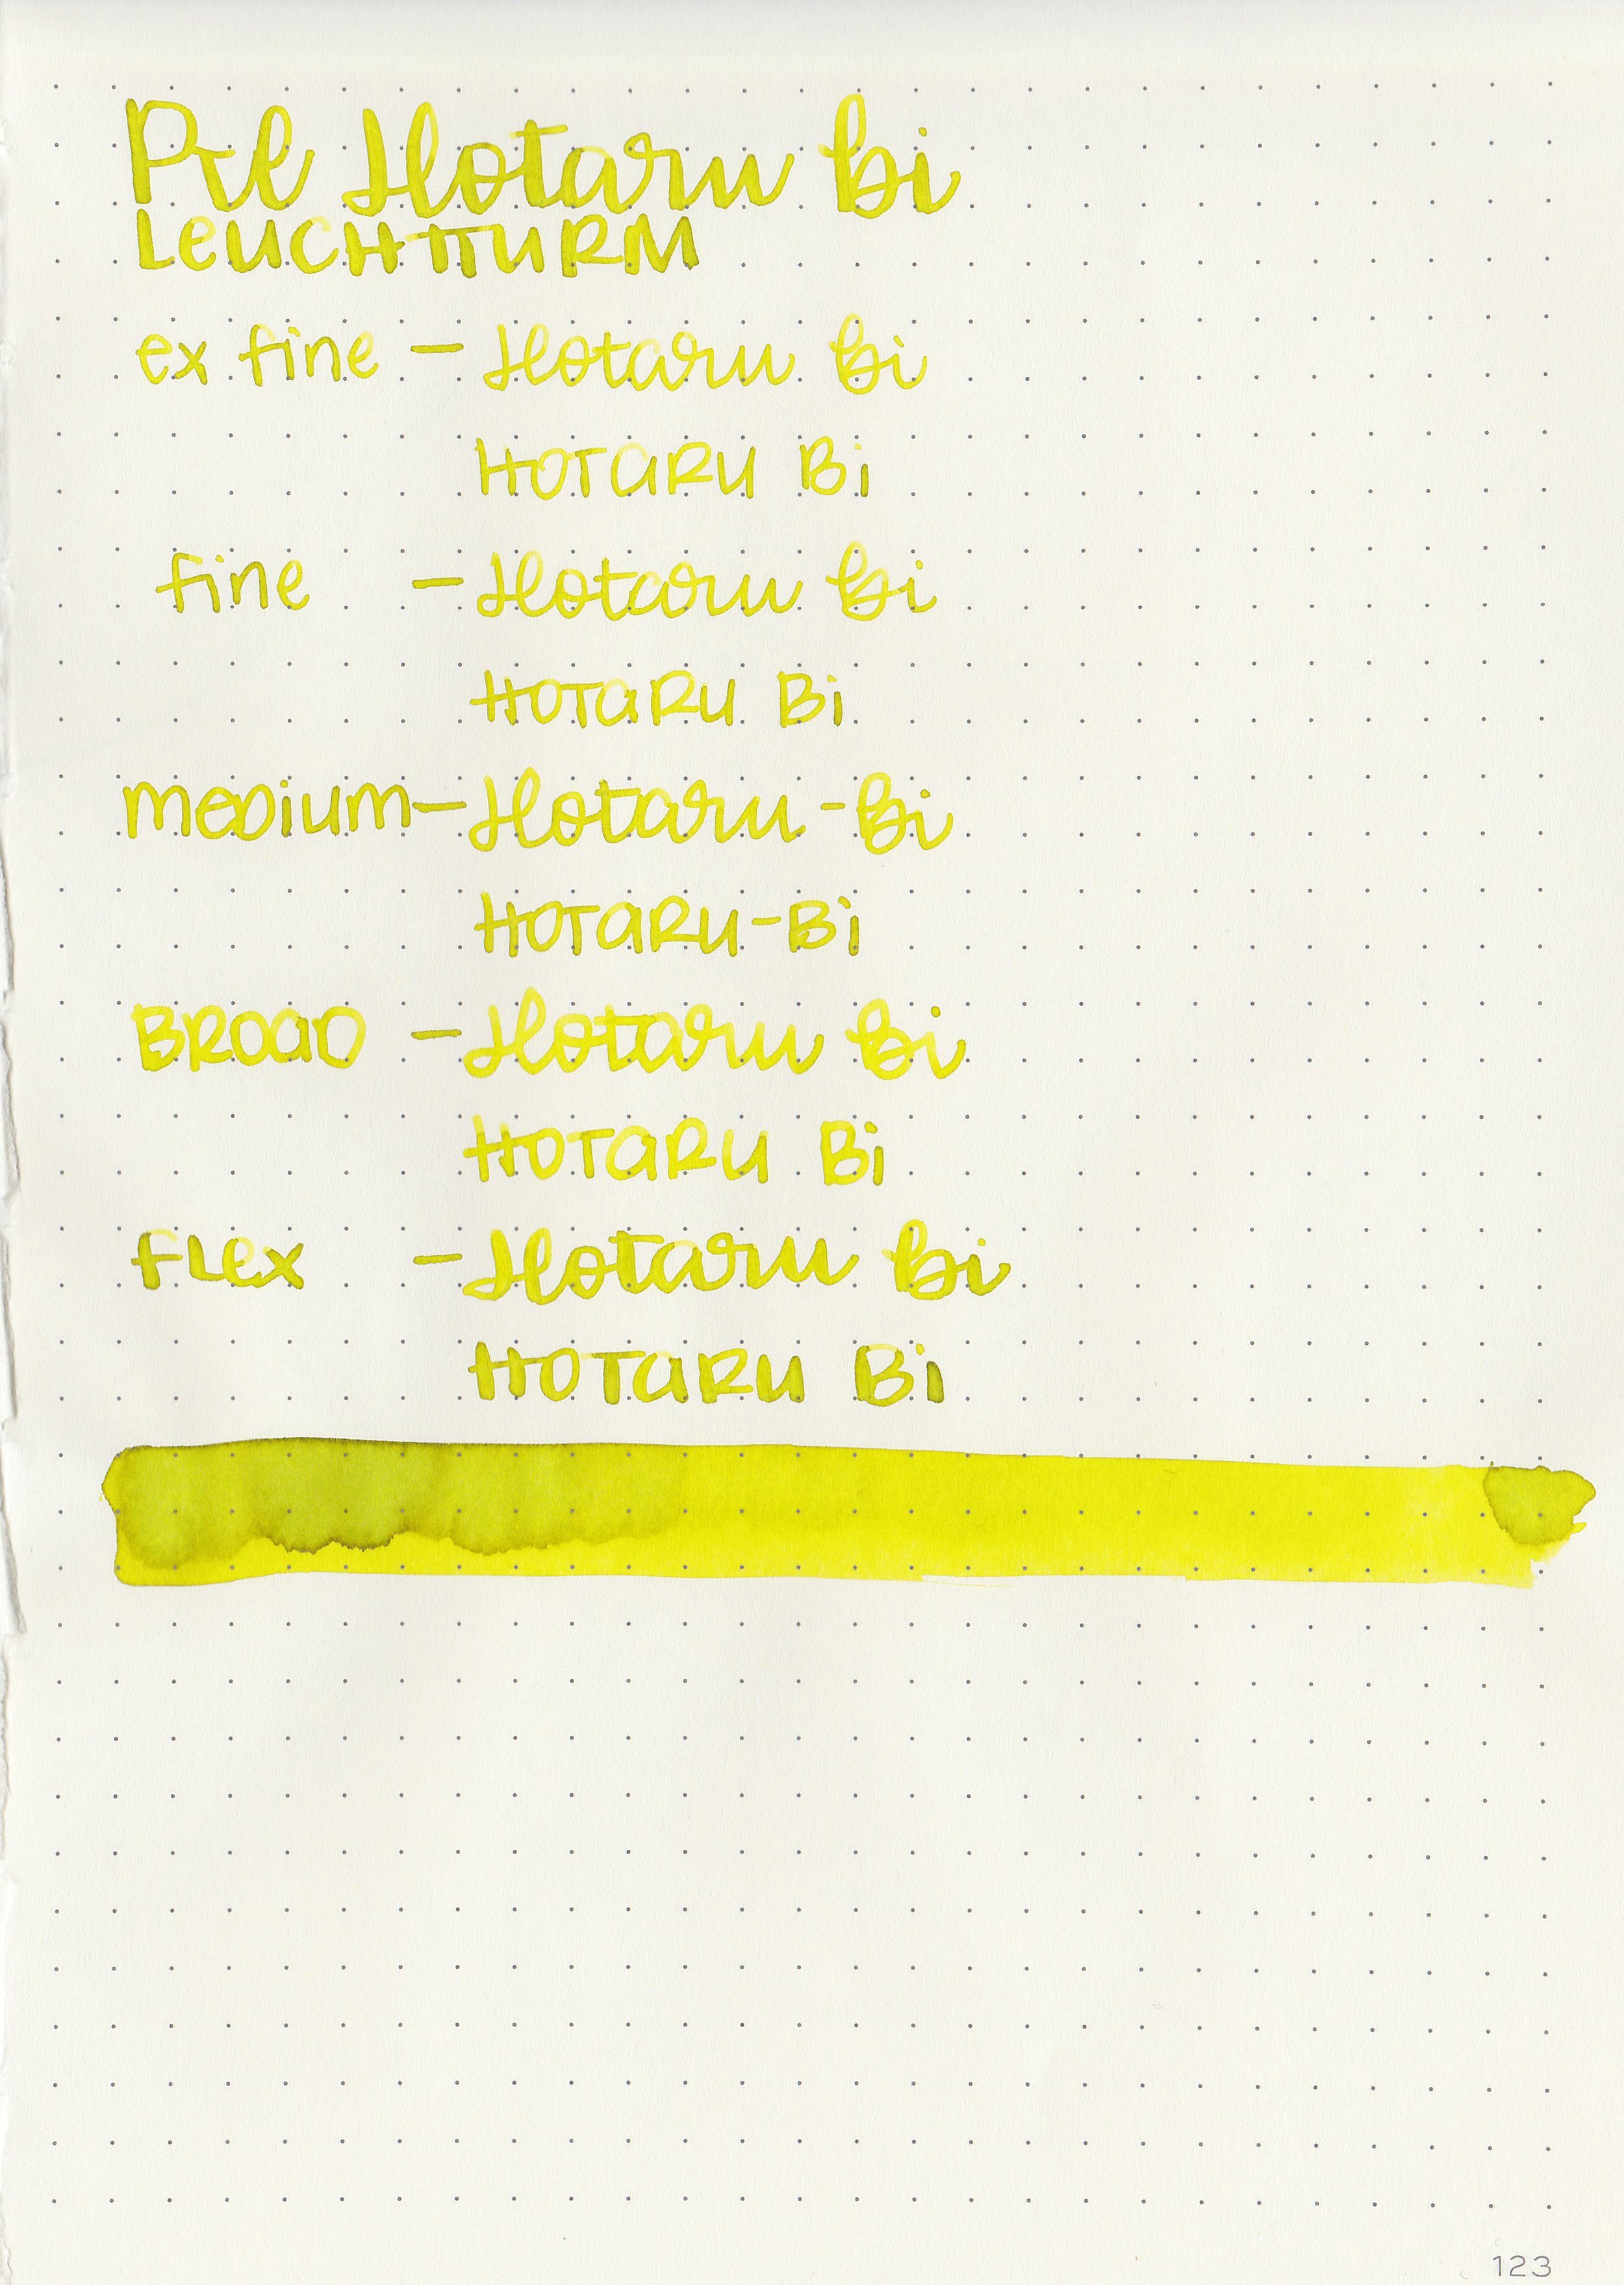 Pil Hotaru bi
LEUCHTTURM
ex fine - Hotaru Bi
HOTARU Bi
fine - Hotaru Bi
HOTARU Bi
meDium - Hotaru-Bi
HOTARU-Bi
BROAD - Hotaru Bi
HOTARU Bi
FLex - Hotaru Bi
HOTARU Bi
123